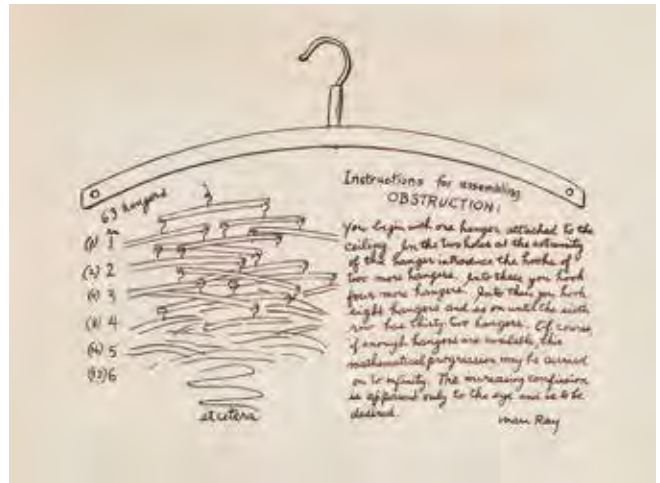 63 hangers
(1) 1
(2) 2
(4) 3
(8) 4
(16) 5
(32) 6
et cetera
Instructions for assembling
OBSTRUCTION:
You begin with one hanger attached to the
ceiling. In the two holes at the extremity
of the hanger introduce the hooks of
two more hangers. Into these you hook
four more hangers. Into these you hook
eight hangers and so on until the sixth
row has thirty-two hangers. Of course,
if enough hangers are available, this
mathematical progression may be carried
on to infinity. The increasing confusion
is apparent only to the eye and is to be
desired.
Man Ray